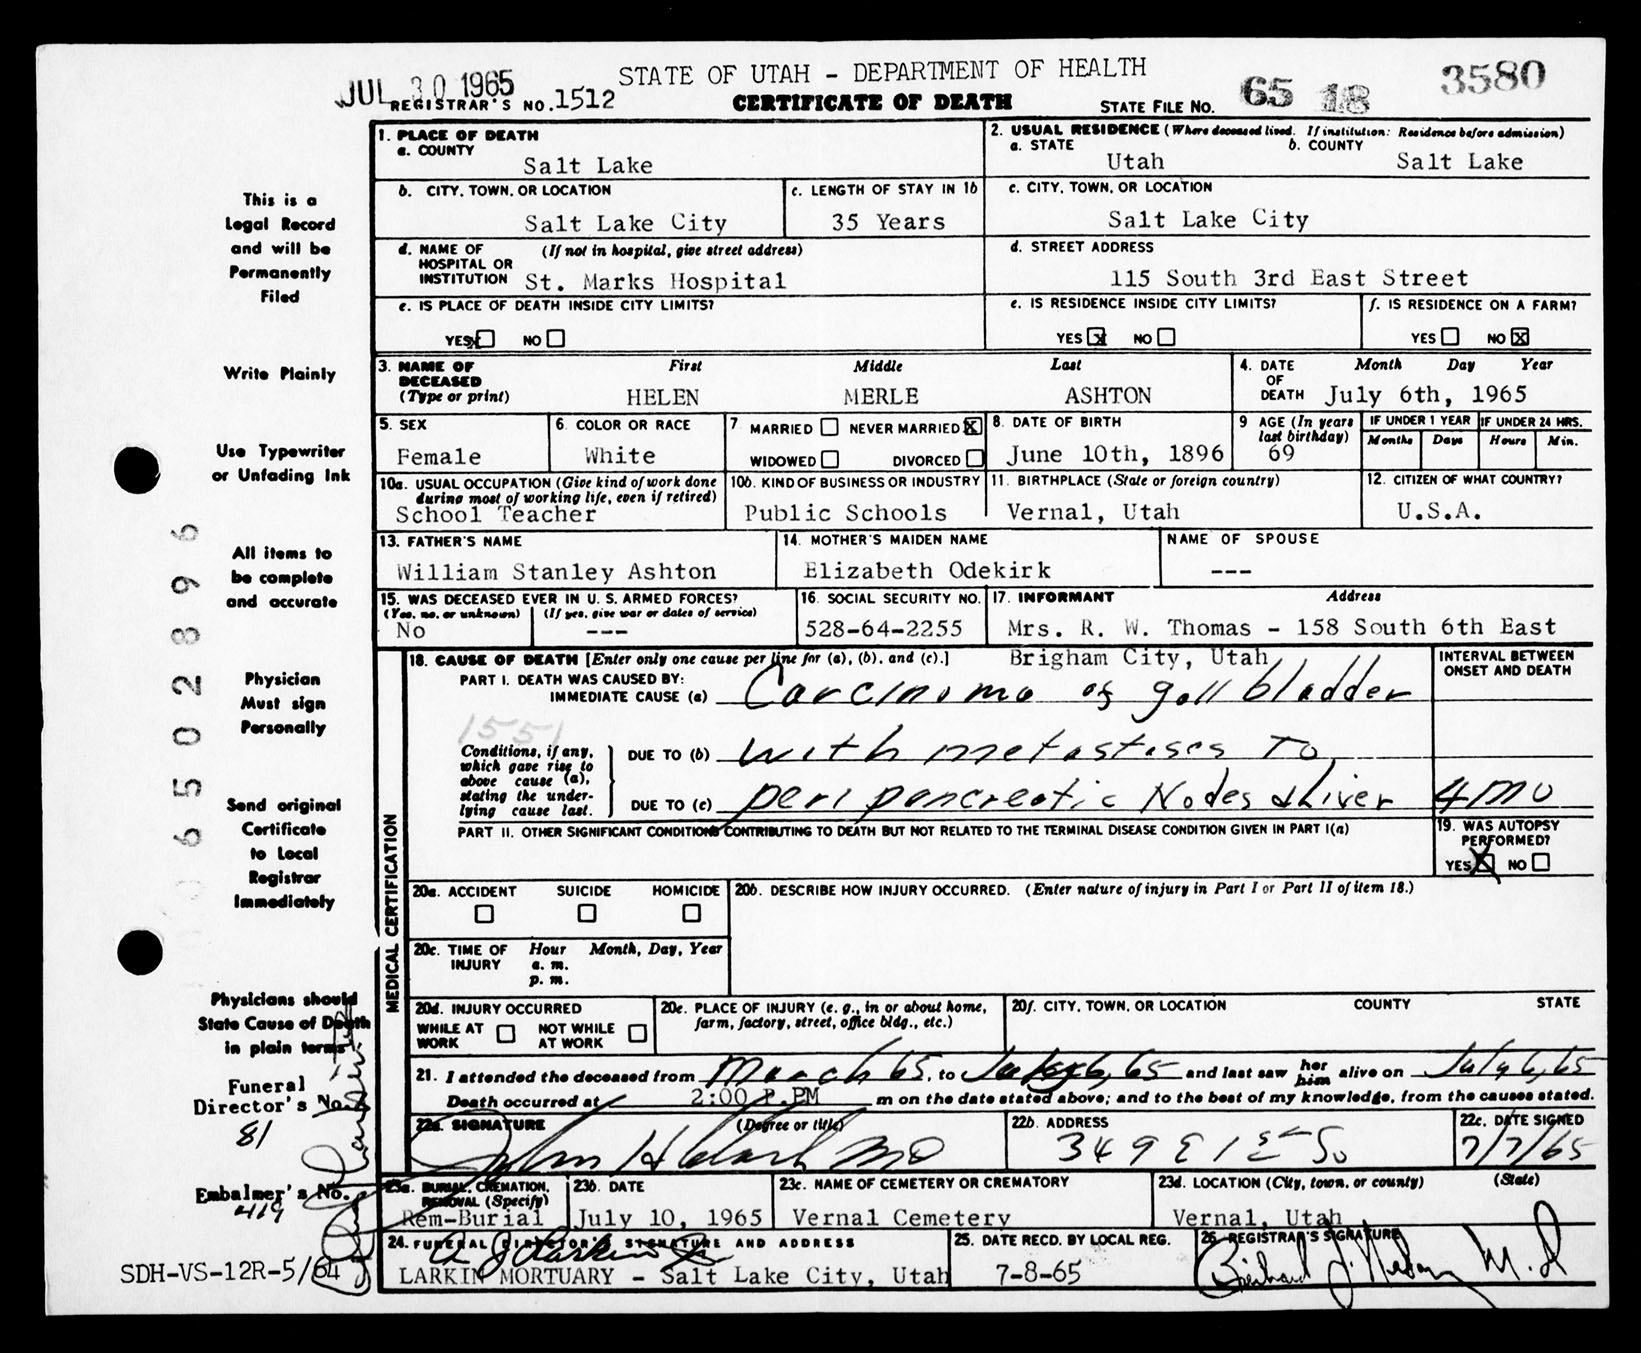 JUL 30 1965
STATE OF UTAH - DEPARTMENT OF HEALTH
REGISTRAR'S NO. 1512
CERTIFICATE OF DEATH
STATE FILE NO. 65 18 3580
This is a
Legal Record
and will be
Permanently
Filed
Write Plainly
Use Typewriter
or Unfading Ink
All items to
be complete
and accurate
Physician
Must sign
Personally
Send original
Certificate
to Local
Registrar
Immediately
Physicians should
State Cause of Death
in plain terms
Funeral
Director's No.
81
Embalmer's No.
419
SDH-VS-12R-5/64
6 5 0 2 8 9 6
1. PLACE OF DEATH
a. COUNTY
Salt Lake
2. USUAL RESIDENCE (Where deceased lived. If institution: Residence before admission)
a. STATE b. COUNTY
Utah Salt Lake
b. CITY, TOWN, OR LOCATION
Salt Lake City
c. LENGTH OF STAY IN 1b
35 Years
c. CITY, TOWN, OR LOCATION
Salt Lake City
d. NAME OF (If not in hospital, give street address)
HOSPITAL OR
INSTITUTION St. Marks Hospital
d. STREET ADDRESS
115 South 3rd East Street
e. IS PLACE OF DEATH INSIDE CITY LIMITS?
YES X NO
e. IS RESIDENCE INSIDE CITY LIMITS?
YES X NO
f. IS RESIDENCE ON A FARM?
YES NO X
3. NAME OF First Middle Last
DECEASED
(Type or print) HELEN MERLE ASHTON
4. DATE Month Day Year
OF
DEATH July 6th, 1965
5. SEX
Female
6. COLOR OR RACE
White
7 MARRIED NEVER MARRIED X
WIDOWED DIVORCED
8. DATE OF BIRTH
June 10th, 1896
9 AGE (In years
last birthday)
69
IF UNDER 1 YEAR IF UNDER 24 HRS.
Months Days Hours Min.
10a. USUAL OCCUPATION (Give kind of work done
during most of working life, even if retired)
School Teacher
10b. KIND OF BUSINESS OR INDUSTRY
Public Schools
11. BIRTHPLACE (State or foreign country)
Vernal, Utah
12. CITIZEN OF WHAT COUNTRY?
U.S.A.
13. FATHER'S NAME
William Stanley Ashton
14. MOTHER'S MAIDEN NAME
Elizabeth Odekirk
NAME OF SPOUSE
---
15. WAS DECEASED EVER IN U. S. ARMED FORCES?
(Yes, no, or unknown) (If yes, give war or dates of service)
No ---
16. SOCIAL SECURITY NO.
528-64-2255
17. INFORMANT Address
Mrs. R. W. Thomas - 158 South 6th East
Brigham City, Utah
MEDICAL CERTIFICATION
18. CAUSE OF DEATH [Enter only one cause per line for (a), (b), and (c).]
INTERVAL BETWEEN
ONSET AND DEATH
PART I. DEATH WAS CAUSED BY:
IMMEDIATE CAUSE (a) Carcinoma of gall bladder
1551
Conditions, if any,
which gave rise to
above cause (a),
stating the under-
lying cause last.
DUE TO (b) with metastases to
DUE TO (c) peri pancreatic Nodes & Liver 4 mo
PART II. OTHER SIGNIFICANT CONDITIONS CONTRIBUTING TO DEATH BUT NOT RELATED TO THE TERMINAL DISEASE CONDITION GIVEN IN PART I(a)
19. WAS AUTOPSY
PERFORMED?
YES X NO
20a. ACCIDENT SUICIDE HOMICIDE
20b. DESCRIBE HOW INJURY OCCURRED. (Enter nature of injury in Part I or Part II of item 18.)
20c. TIME OF Hour Month, Day, Year
INJURY a. m.
p. m.
20d. INJURY OCCURRED
WHILE AT WORK NOT WHILE AT WORK
20e. PLACE OF INJURY (e. g., in or about home,
farm, factory, street, office bldg., etc.)
20f. CITY, TOWN, OR LOCATION COUNTY STATE
21. I attended the deceased from March 65, to July 6, 65 and last saw her him alive on July 6, 65
Death occurred at 2:00 P.PM m on the date stated above; and to the best of my knowledge, from the causes stated.
22a. SIGNATURE (Degree or title)
John H Clark MD
22b. ADDRESS
349 E 1st So
22c. DATE SIGNED
7/7/65
23a. BURIAL, CREMATION,
REMOVAL (Specify)
Rem-Burial
23b. DATE
July 10, 1965
23c. NAME OF CEMETERY OR CREMATORY
Vernal Cemetery
23d. LOCATION (City, town, or county) (State)
Vernal, Utah
24. FUNERAL DIRECTOR'S SIGNATURE AND ADDRESS
LARKIN MORTUARY - Salt Lake City, Utah
25. DATE RECD. BY LOCAL REG.
7-8-65
26. REGISTRAR'S SIGNATURE
M.D